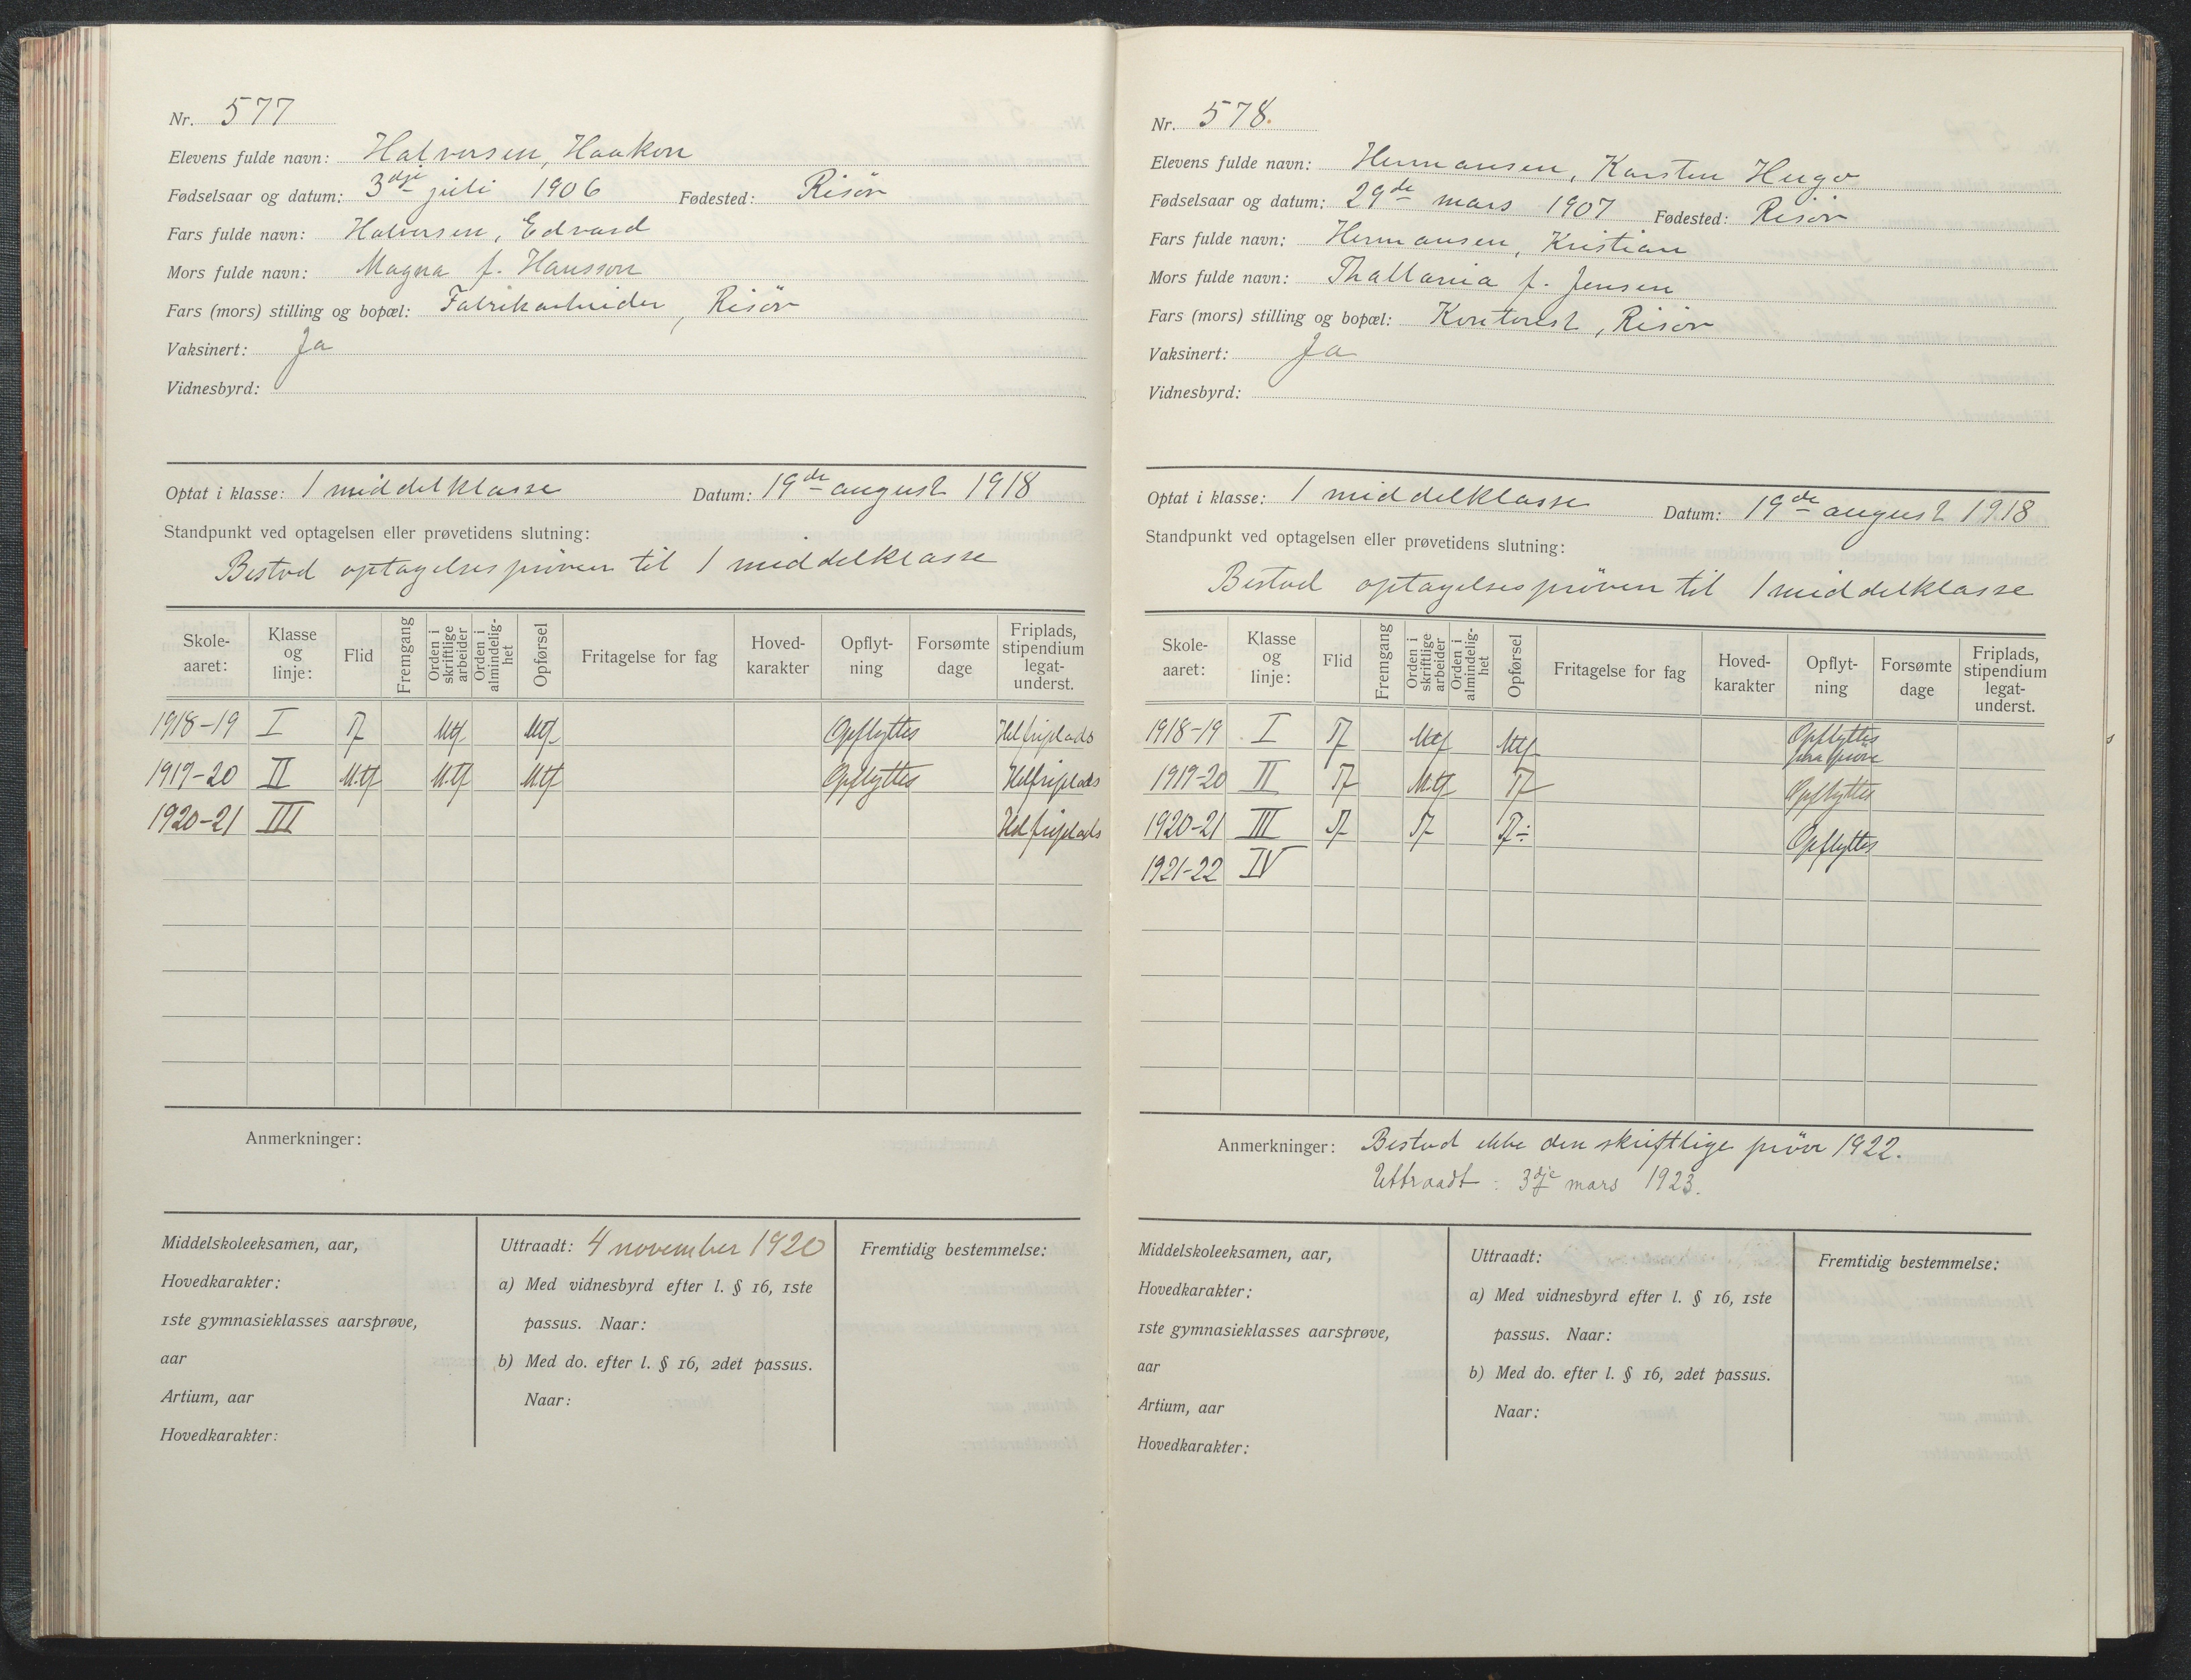 Nr. 577
Elevens fulde navn: Halvorsen, Haakon
Fødselsaar og datum: 3dje juli 1906 Fødested: Risör
Fars fulde navn: Halvorsen, Edvard
Mors fulde navn: Magna f. Hansson
Fars (mors) stilling og bopæl: Fabrikarbeider, Risör
Vaksinert: Ja
Vidnesbyrd:
Optat i klasse: 1 middelklasse Datum: 19de august 1918
Standpunkt ved optagelsen eller prøvetidens slutning:
Bestod optagelsesprøven til 1 middelklasse
Skole-aaret: Klasse og linje: Flid Fremgang Orden i skriftlige arbeider Orden i almindelig-het Opførsel Fritagelse for fag Hoved-karakter Opflyt-ning Forsømte dage Friplads, stipendium legat-underst.
1918-19 I Tf Mtf Mtf Opflyttes Hel friplads
1919-20 II M.tf M.tf Mtf Opflyttes Hel friplads
1920-21 III Hel friplads
Anmerkninger:
Middelskoleeksamen, aar,
Hovedkarakter:
1ste gymnasieklasses aarsprøve,
aar
Artium, aar
Hovedkarakter:
Uttraadt: 4 november 1920
a) Med vidnesbyrd efter l. § 16, 1ste
passus. Naar:
b) Med do. efter l. § 16, 2det passus.
Naar:
Fremtidig bestemmelse:
Nr. 578.
Elevens fulde navn: Hermansen, Karsten Hugo
Fødselsaar og datum: 29de mars 1907 Fødested: Risör
Fars fulde navn: Hermansen, Kristian
Mors fulde navn: Thallania f. Jensen
Fars (mors) stilling og bopæl: Kontorist, Risör
Vaksinert: Ja
Vidnesbyrd:
Optat i klasse: 1 middelklasse Datum: 19de august 1918
Standpunkt ved optagelsen eller prøvetidens slutning:
Bestod optagelsespröven til 1 middelklasse
Skole-aaret: Klasse og linje: Flid Fremgang Orden i skriftlige arbeider Orden i almindelig-het Opførsel Fritagelse for fag Hoved-karakter Opflyt-ning Forsømte dage Friplads, stipendium legat-underst.
1918-19 I Tf Mtf Mtf Opflyttes paa prøve
1919-20 II Tf M.tf Tf Opflyttes
1920-21 III Tf Tf Tf÷ Opflyttes
1921-22 IV
Anmerkninger: Bestod ikke den skriftlige prøve 1922.
Uttraadt: 3dje mars 1923.
Middelskoleeksamen, aar,
Hovedkarakter:
1ste gymnasieklasses aarsprøve,
aar
Artium, aar
Hovedkarakter:
Uttraadt:
a) Med vidnesbyrd efter l. § 16, 1ste
passus. Naar:
b) Med do. efter l. § 16, 2det passus.
Naar:
Fremtidig bestemmelse: